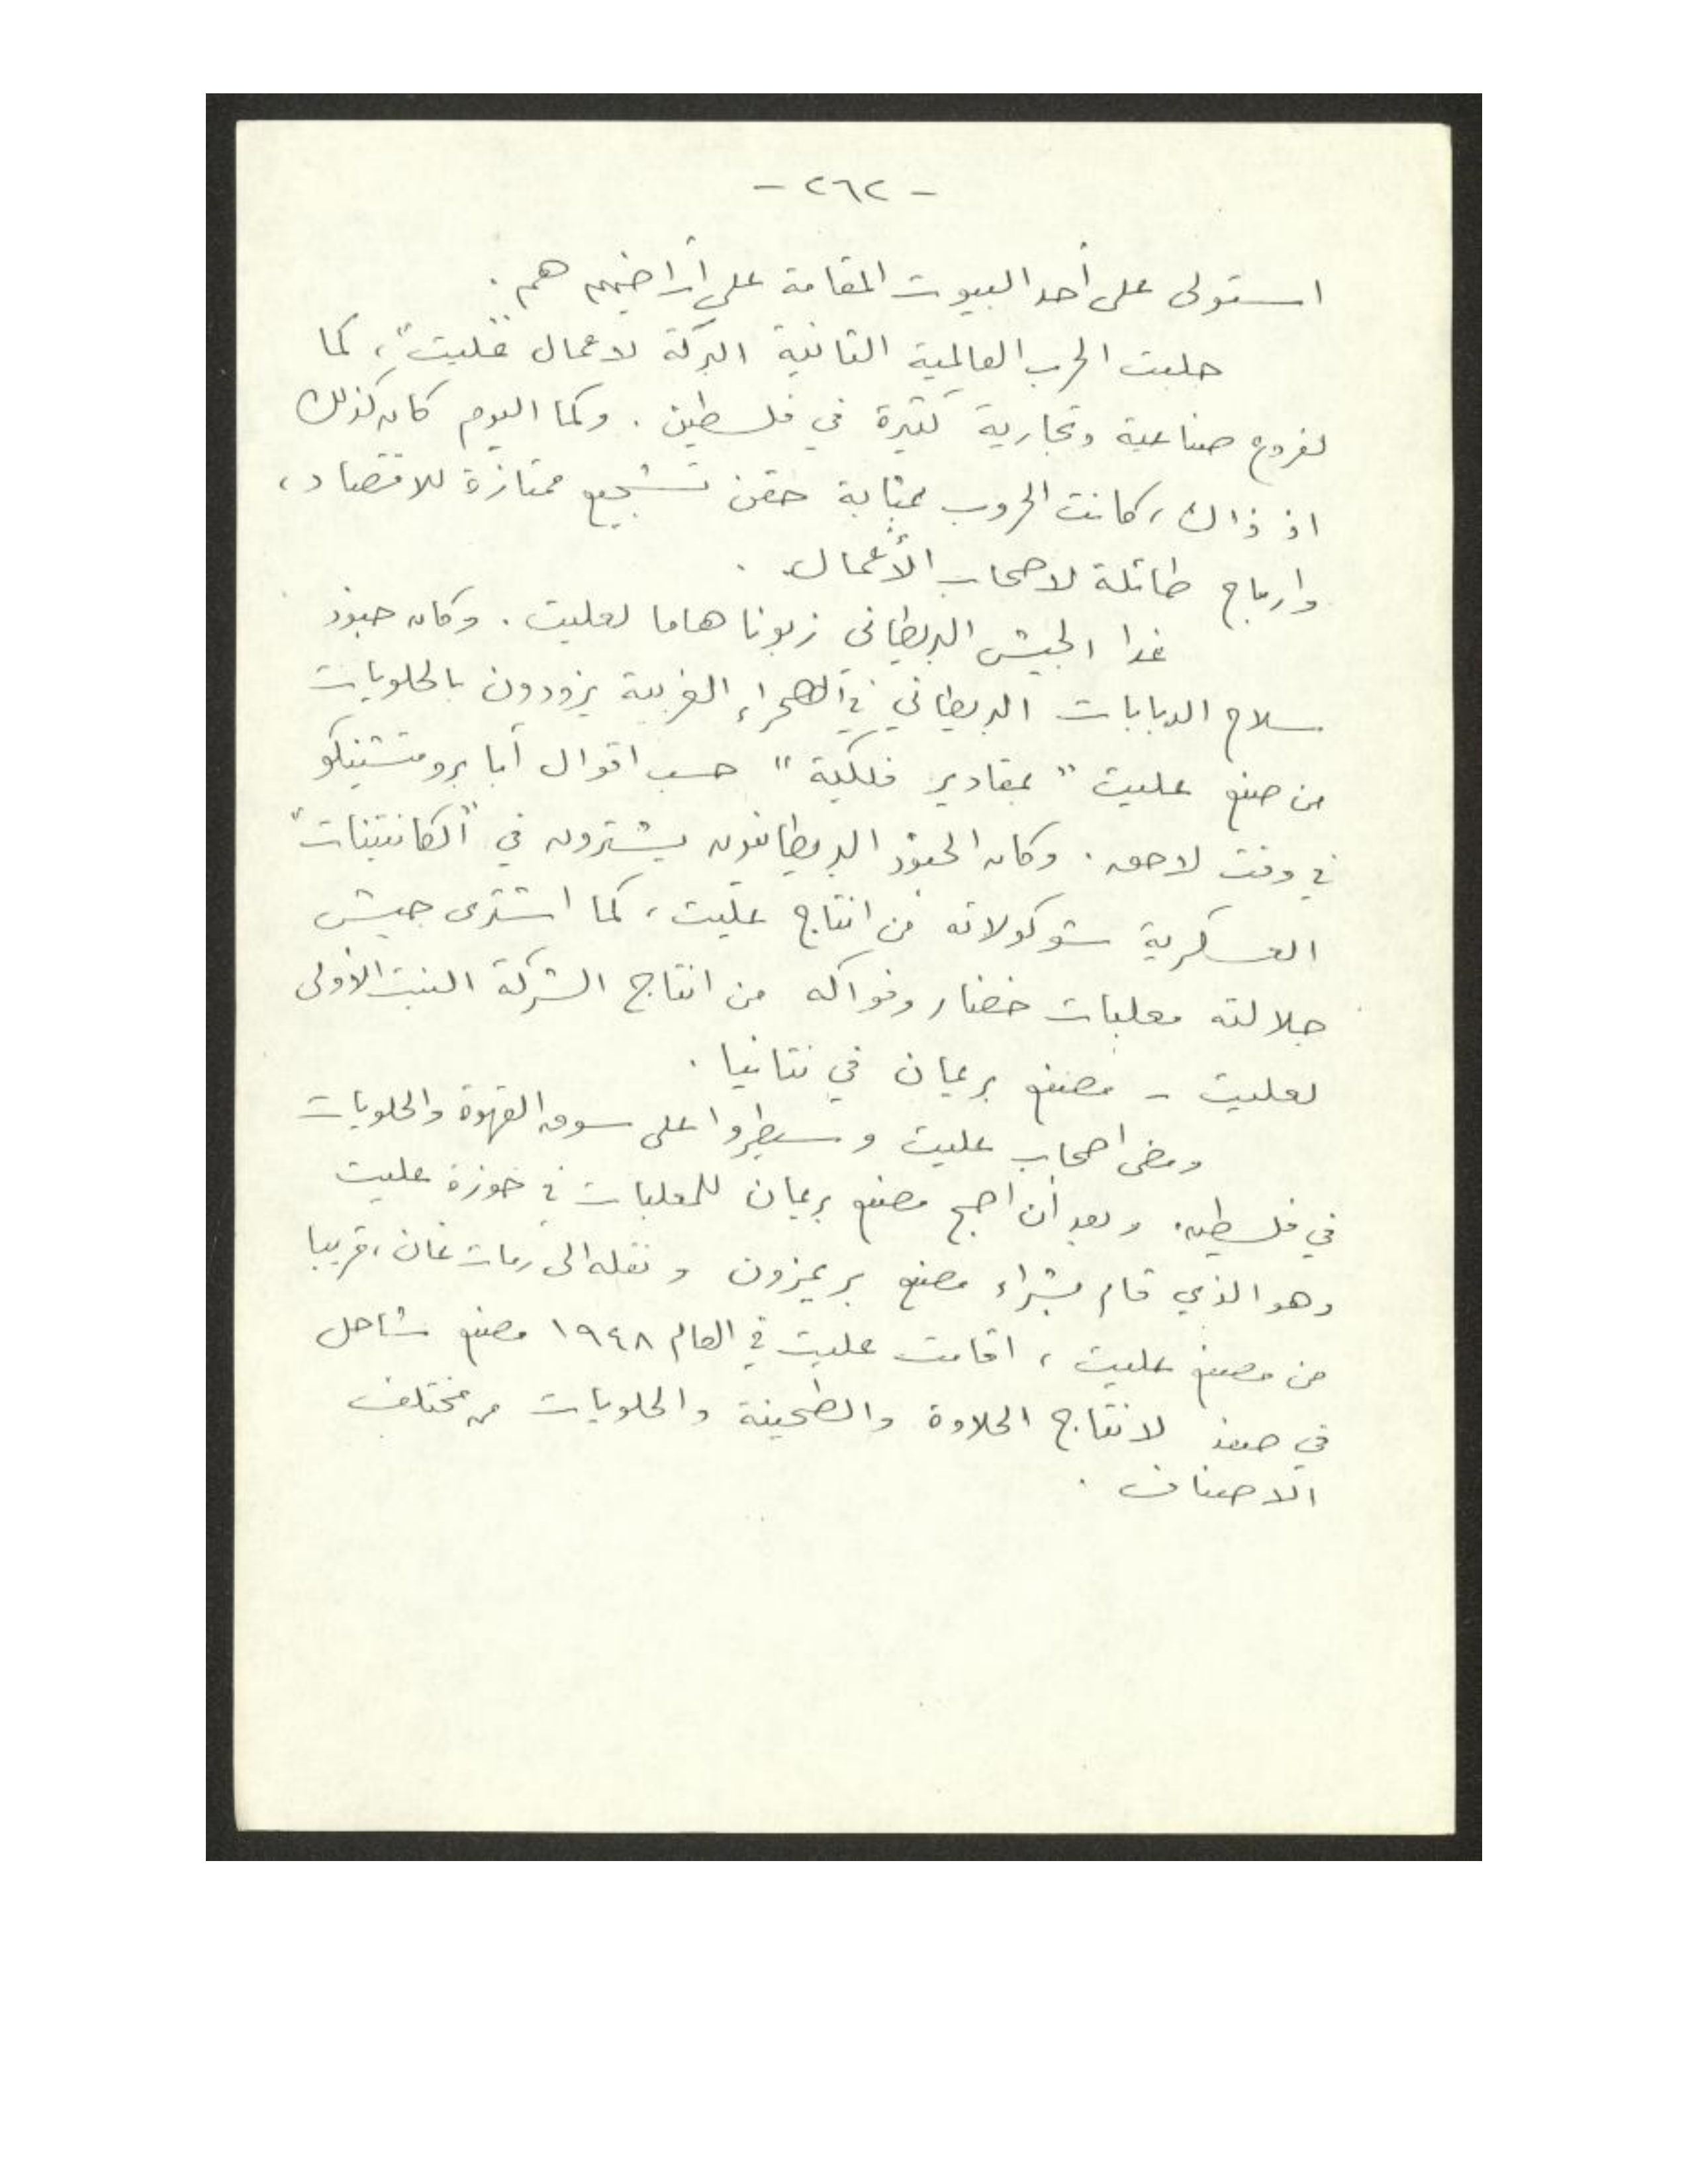 - ٢٦٢ -
استولى على أحد البيوت المقامة على أراضيهم هم .
جلبت الحرب العالمية الثانية البركة لاعمال "عليت"، كما
لفروع صناعية وتجارية كثيرة في فلسطين . وكما اليوم كان كذلك
اذ ذاك ، كانت الحروب بمثابة حقن تشجيع ممتازة للاقتصاد ،
وارباح طائلة لاصحاب الأعمال .
غدا الجيش البريطاني زبونا هاما لعليت . وكان جنود
سلاح الدبابات البريطاني في الصحراء الغربية يزودون بالحلويات
من صنع عليت " بمقادير فلكية " حسب اقوال أبا برومتشينكو
في وقت لاحق . وكان الجنود البريطانيون يشترون في "الكانتينات"
العسكرية شوكولاته من انتاج عليت ، كما اشترى جيش
جلالته معلبات خضار وفواكه من انتاج الشركة البنت الأولى
لعليت - مصنع بريمان في نتانيا .
ومضى اصحاب عليت وسيطروا على سوق القهوة والحلويات
في فلسطين . وبعد أن اصبح مصنع بريمان للمعلبات في حوزة عليت
وهو الذي قام بشراء مصنع بريمزون ونقله الى رمات غان ، قريبا
من مصنع عليت ، اقامت عليت في العام ١٩٤٨ مصنع شاحل
في صفد لانتاج الحلاوة والطحينة والحلويات من مختلف
الاصناف .